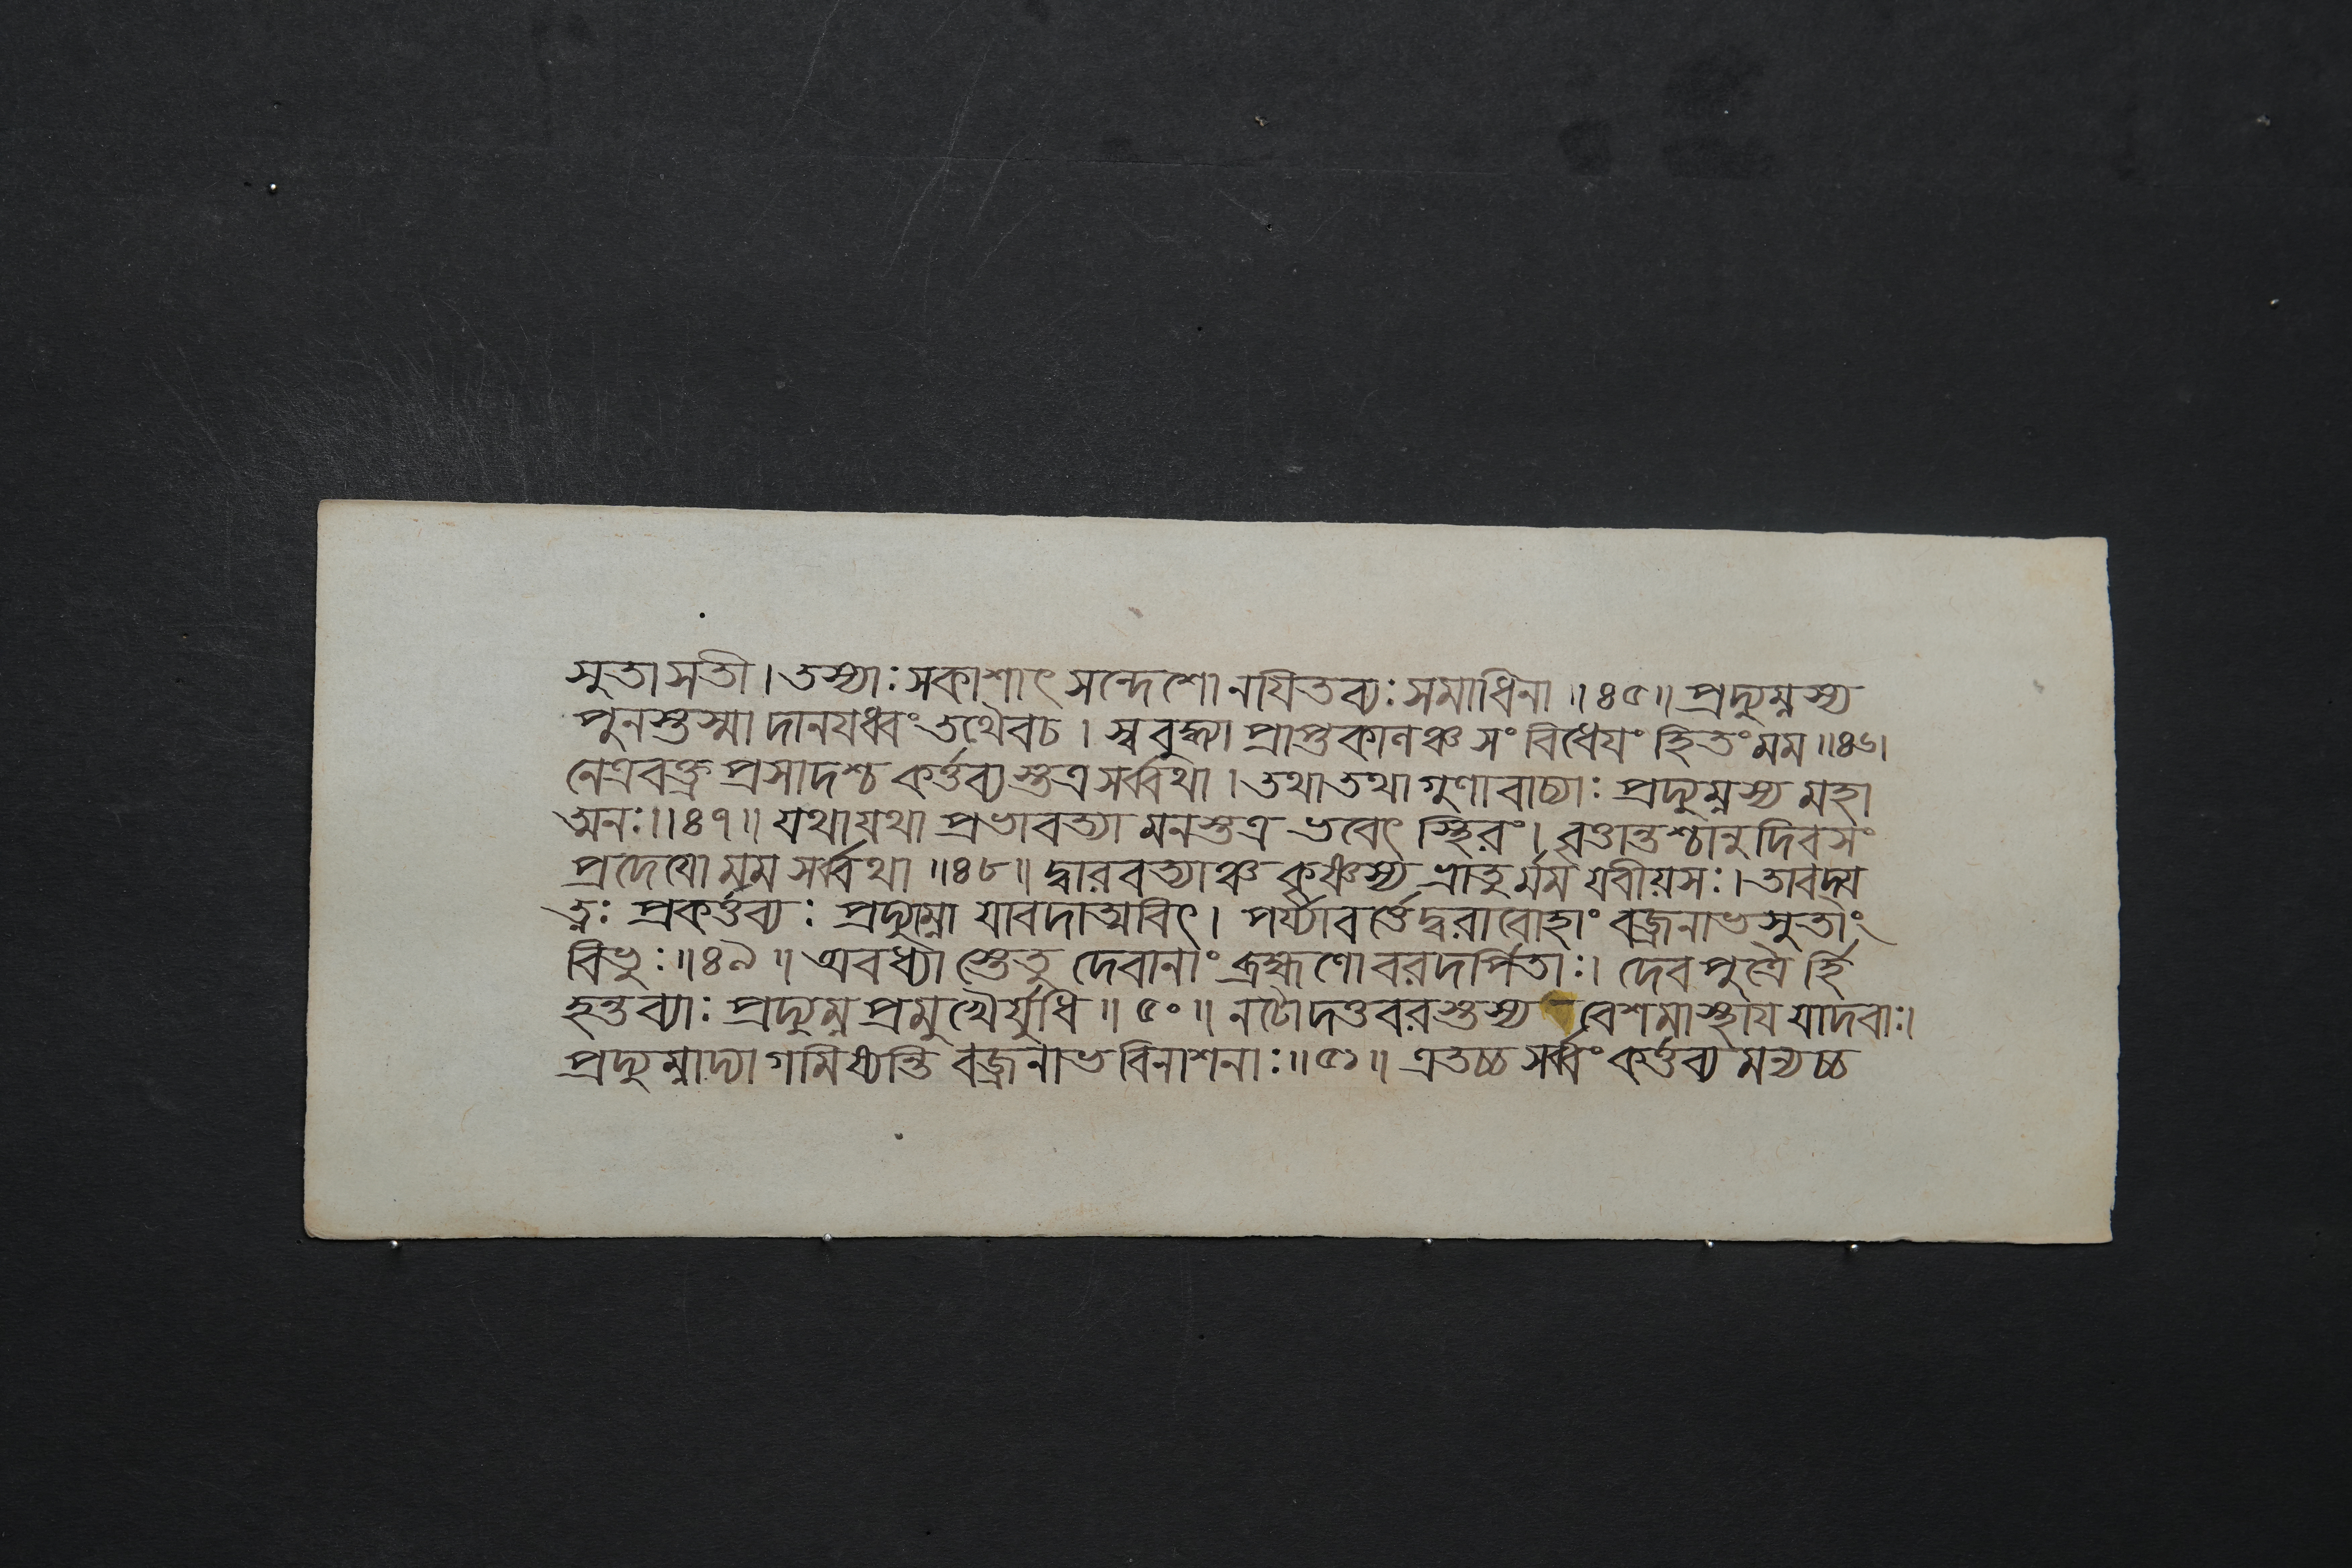 সুতা সতী । তস্যাঃ সকাশাৎ সন্দেশো নযিতব্যঃ সমাধিনা ॥ ৪৫ ॥ প্রদ্যুম্নস্য
পুনস্তস্মাদানযধ্বং তথৈবচ । স্ববুদ্ধ্যা প্রাপ্তকালঞ্চ সংবিধেযং হিতং মম ॥ ৪৬ ।
নেত্রবক্ত্র প্রসাদশ্চ কর্ত্তব্যস্তত্র সর্ব্বথা । তথা তথা গুণা বাচ্যাঃ প্রদ্যুম্নস্য মহা
ত্মনঃ । ॥ ৪৭ ॥ যথা যথা প্রভাবত্যা মনস্তত্র ভবেৎ স্থিরং । বৃত্তান্তশ্চানুদিবসং
প্রদেযো মম সর্ব্বথা ॥ ৪৮ ॥ দ্বারবত্যাঞ্চ কৃষ্ণস্য ভ্রাতুর্মম যবীয়সঃ । তাবদ্য
ত্নঃ প্রকর্ত্তব্যঃ প্রদ্যুম্নো যাবদাত্মবিৎ । পর্য্যাবর্ত্তেদ্বরারোহাং বজ্রনাভসুতাং
বিভুঃ ॥ ৪৯ ॥ অবধ্যাস্তেতু দেবানাং ব্রহ্মণো বরদর্পিতাঃ । দেবপুত্রৈর্হি
হন্তব্যাঃ প্রদ্যুম্ন প্রমুখৈর্যুধি ॥ ৫০ ॥ নটোদত্তবরস্তস্য বেশমাস্থায যাদবাঃ ।
প্রদ্যুম্নাদ্যা গমিষ্যন্তি বজ্রনাভ বিনাশনাঃ ॥ ৫১ ॥ এতচ্চ সর্ব্বং কর্ত্তব্য মন্যচ্চ